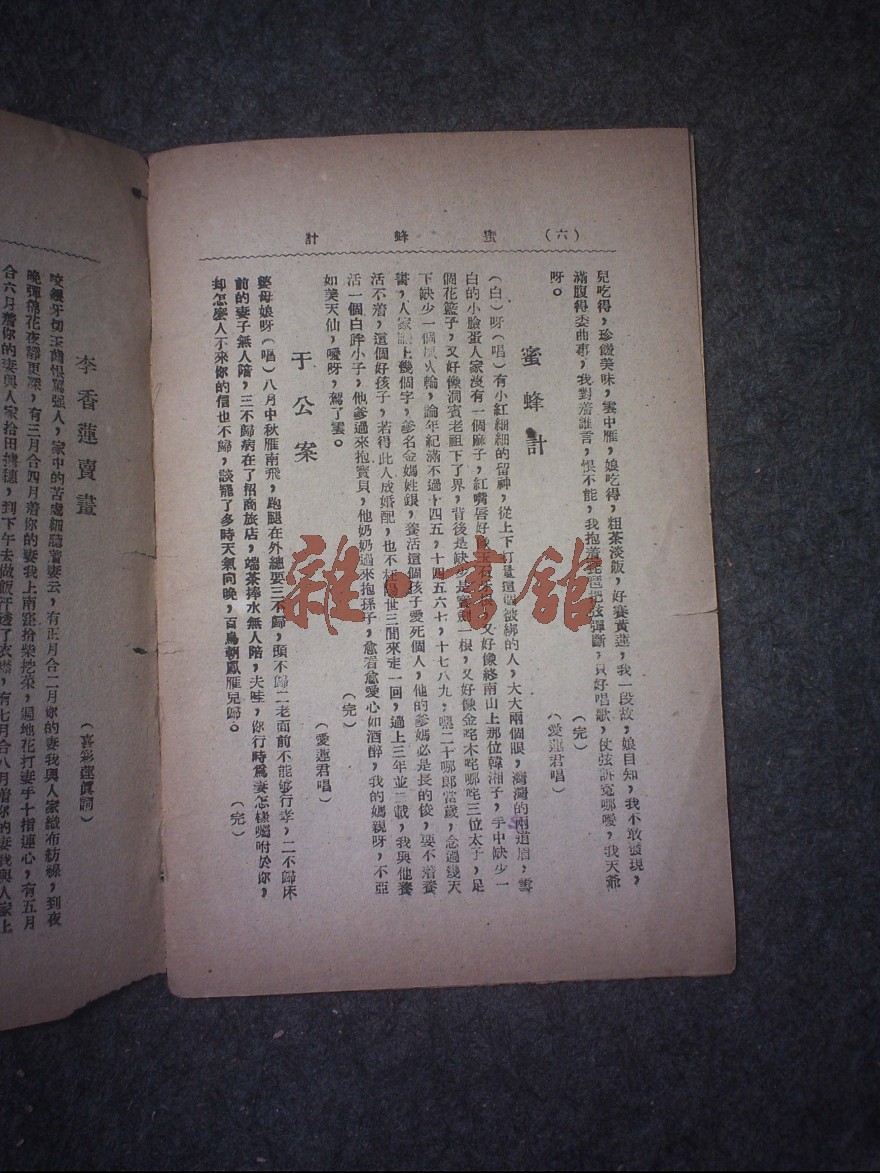 計　蜂　蜜　（六）
兒吃得，珍饈美味，雲中雁，娘吃得，粗茶淡飯，好賽黃蓮，我一段故，娘目知，我不敢發現，
滿腹得委曲事，我對着誰言，恨不能，我抱着琵琶把弦彈斷，只好唱歌，仗弦訴冤哪噯，我天爺
呀。　（完）
蜜蜂計　（愛蓮君唱）
（白）呀（唱）有小紅糊細的留神，從上下打量這個被綁的人，大大兩個眼，灣灣的兩道眉，雪
白的小臉蛋人家沒有一個麻子，紅嘴唇好像　石　，又好像終南山上那位韓湘子，手中缺少一
個花籃子，又好像洞賓老祖下了界，背後是缺少是寶劍一根，又好像金咤木咤哪咤三位太子，足
下缺少一個風火輪，論年紀滿不過十四五，十四五六七，十七八九，嘿二十哪郎當歲，念過幾天
書，人家　上幾個字，爹名金媽姓銀，養活這個孩子愛死個人，他的爹媽必是長的俊，要不着養
活不着，這個好孩子，若得此人成婚配，也不枉陽世三間來走一回，過上三年並二載，我與他養
活一個白胖小子，他爹過來抱寶貝，他奶奶過來抱孫子，愈看愈愛心如酒醉，我的媽親呀，不亞
如美天仙，噯呀，駕了雲。　（完）
于公案　（愛蓮君唱）
婆母娘呀（唱）八月中秋雁南飛，跑腿在外總要三不歸，頭不歸二老面前不能够行孝，二不歸床
前的妻子無人陪，三不歸病在了招商旅店，端茶捧水無人陪，夫哇，你行時爲妻怎樣囑咐於你，
却怎麽人不來你的信也不歸，談罷了多時天氣向晚，百鳥朝鳳雁兒歸。　（完）
李香蓮賣畫　（喜彩蓮眞詞）
咬銀牙切玉齒恨罵强人，家中的苦處細聽着妻云，有正月合二月你的妻我與人家織布紡綫，到夜
晚彈綿花夜靜更深，有三月合四月着你的妻我上南窪拾柴挖菜，遍地花打妻手十指連心，有五月
合六月着你的妻與人家拾田　穗，到下午去做飯汗透了衣襟，有七月合八月着你的妻我與人家上
雜·書館